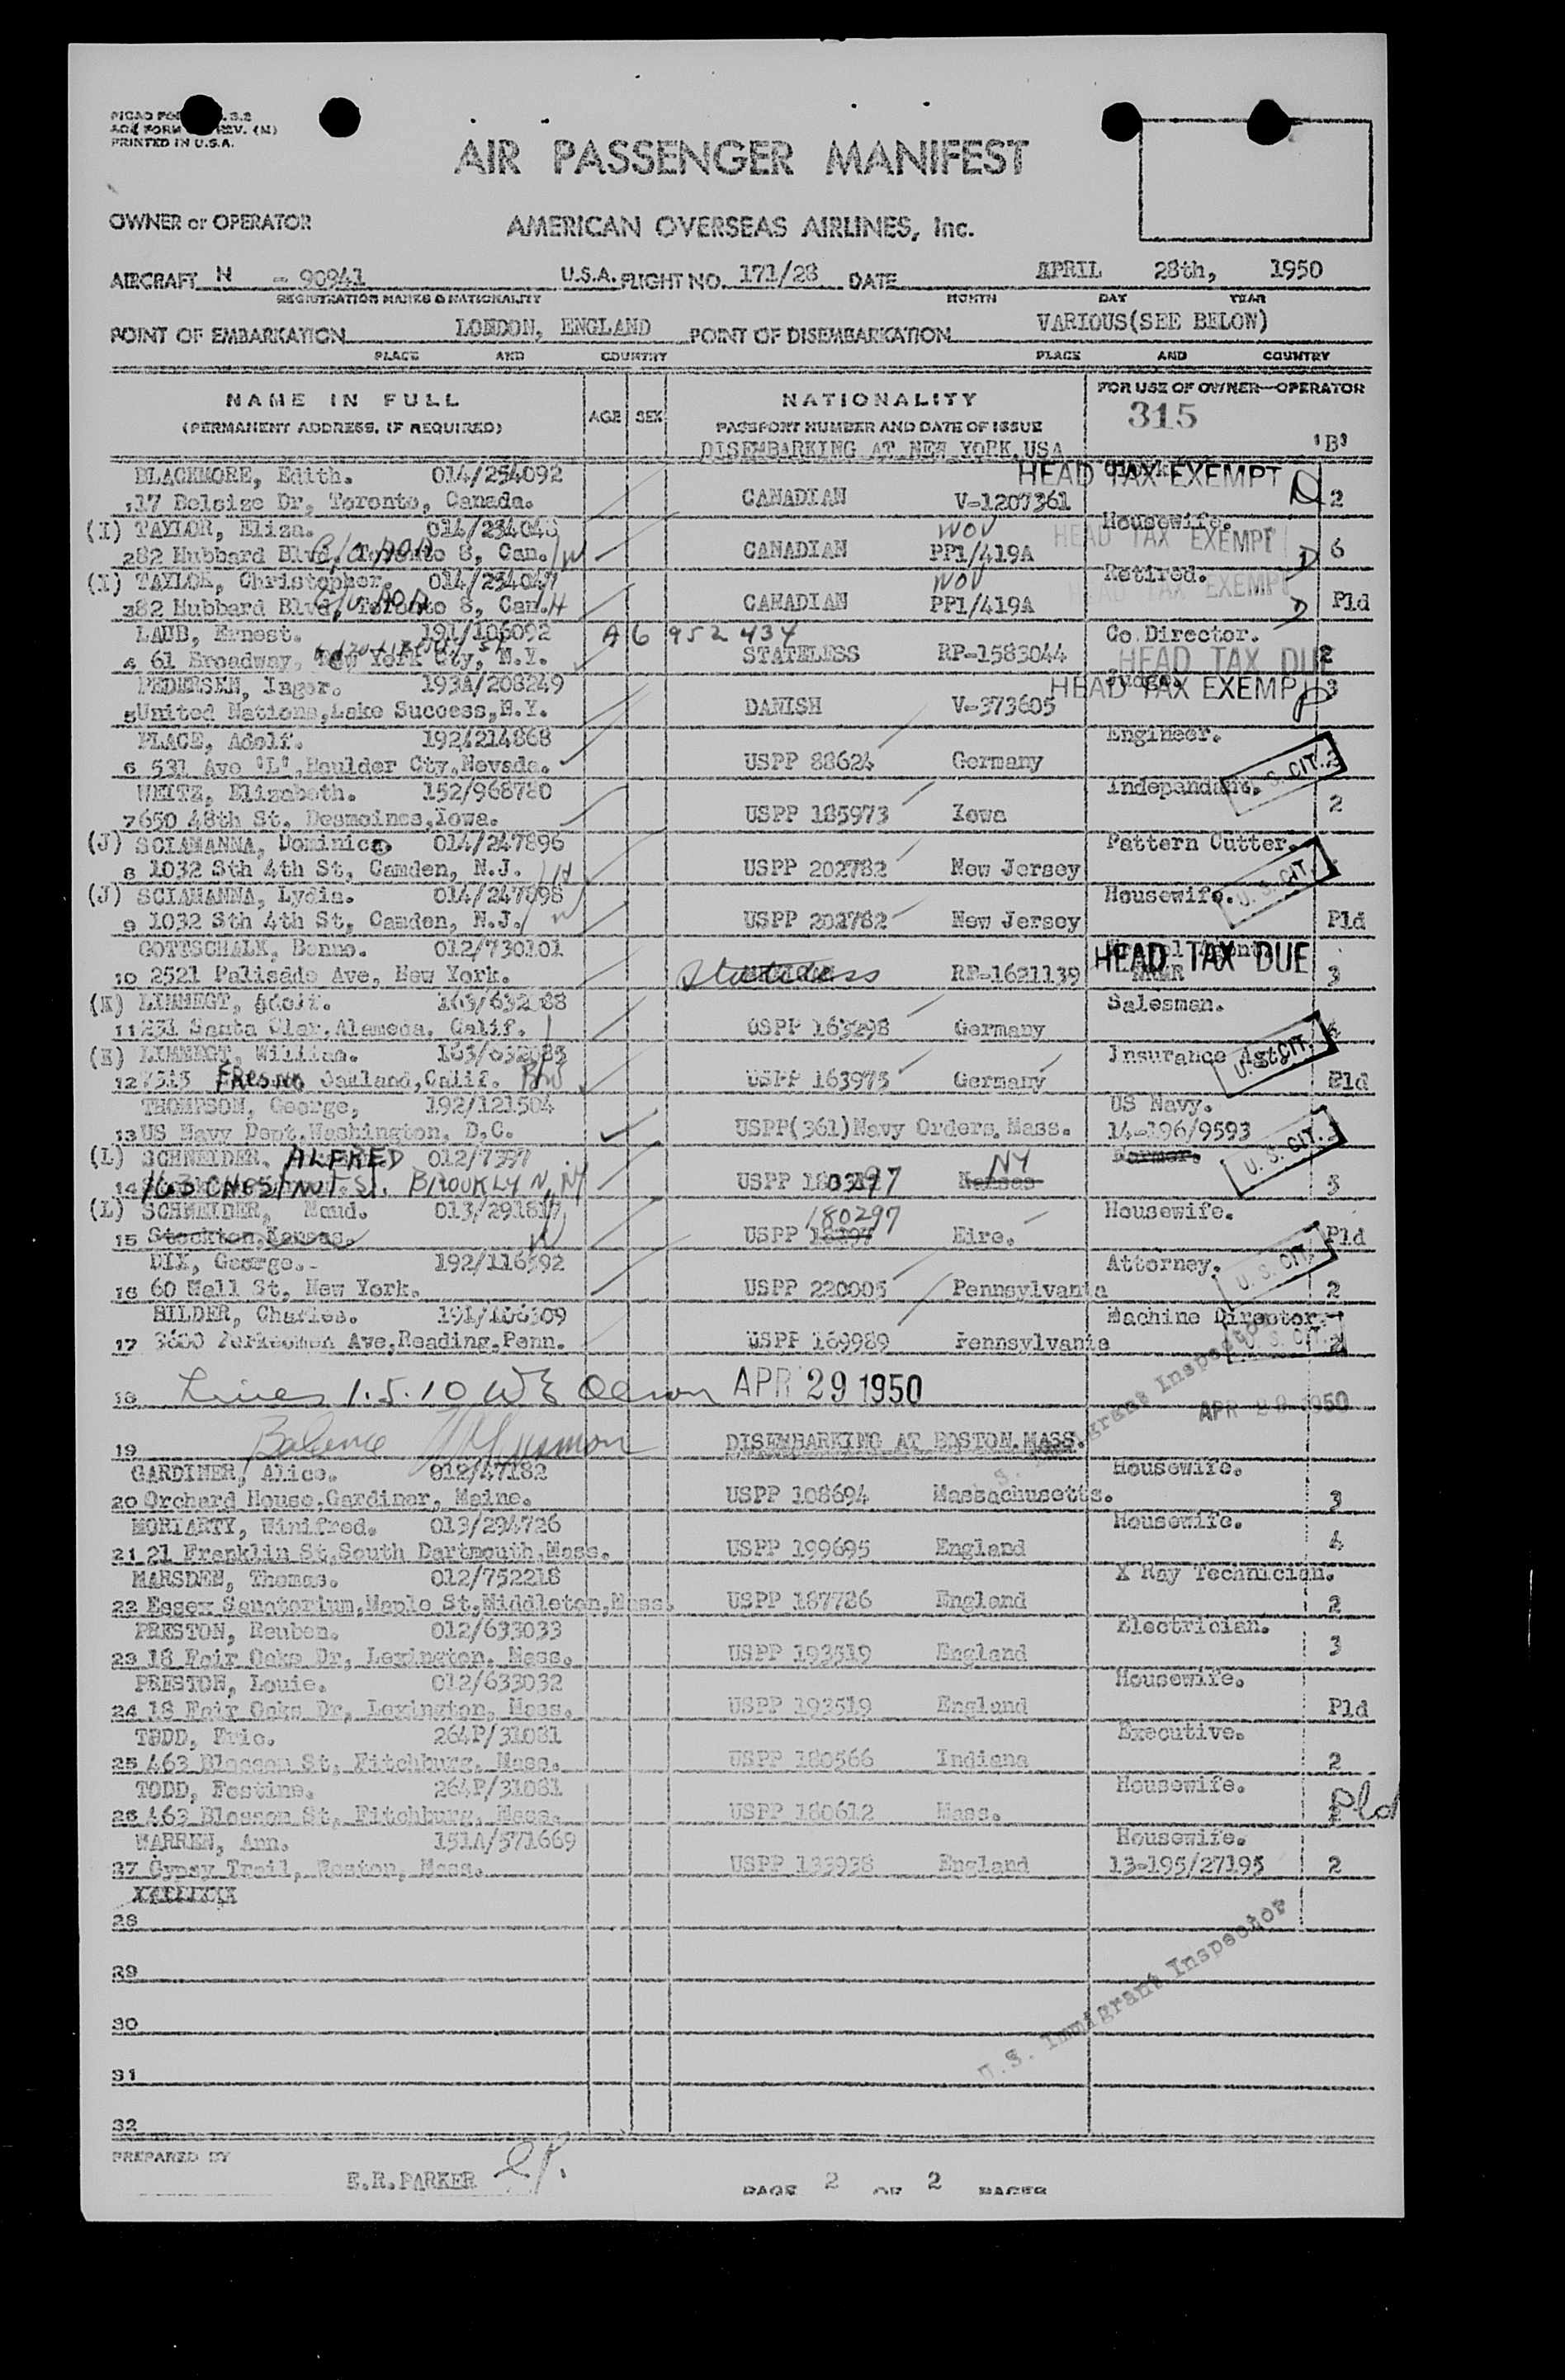 PRINTED IN U.S.A.
AIR PASSENGER MANIFEST
OWNER or OPERATOR AMERICAN OVERSEAS AIRLINES, Inc.
AIRCRAFT N - 90941 U.S.A. FLIGHT NO. 171/28 DATE APRIL 28th, 1950
REGISTRATION MARKS & NATIONALITY MONTH DAY YEAR
POINT OF EMBARKATION LONDON, ENGLAND POINT OF DISEMBARKATION VARIOUS(SEE BELOW)
PLACE AND COUNTRY PLACE AND COUNTRY
NAME IN FULL AGE SEX NATIONALITY FOR USE OF OWNER—OPERATOR
(PERMANENT ADDRESS, IF REQUIRED) PASSPORT NUMBER AND DATE OF ISSUE 315
DISEMBARKING AT NEW YORK, USA 'B'
BLACKMORE, Edith. 014/254092 HEAD TAX EXEMPT
17 Belsize Dr, Toronto, Canada. CANADIAN V-1207361 2
(I) TAYLOR, Eliza. WOV Housewife.
282 Hubbard Blvd, Toronto 8, Can. W CANADIAN PP1/419A HEAD TAX EXEMPT D 6
(I) TAYLOR, Christopher. WOV Retired.
382 Hubbard Blvd, Toronto 8, Can. H CANADIAN PP1/419A HEAD TAX EXEMPT D Pld
LAUB, Ernest. 191/106092 A6 952 434 Co Director.
4 61 Broadway, New York Cty, N.Y. STATELESS RP-1583044 HEAD TAX DUE 2
PEDERSEN, Inger. 193A/208249 Judge. HEAD TAX EXEMP
5 United Nations, Lake Success, N.Y. DANISH V-373605 3
PLACE, Adolf. 192/214868 Engineer.
6 531 Ave 'L', Boulder Cty, Nevada. USPP 88624 Germany U.S. CIT.
WEITZ, Elizabeth. 152/968780 Independant.
7 650 48th St, Desmoines, Iowa. USPP 185973 Iowa 2
(J) SCIAMANNA, Dominico 014/247896 Pattern Cutter.
8 1032 Sth 4th St, Camden, N.J. H USPP 202782 New Jersey U.S. CIT.
(J) SCIAMANNA, Lydia. 014/247898 Housewife.
9 1032 Sth 4th St, Camden, N.J. W USPP 202782 New Jersey Pld
GOTTSCHALK, Benno. 012/730101 HEAD TAX DUE
10 2521 Palisade Ave, New York. Stateless RP-1621139 3
(K) LIMMEGT, Adolf. Salesman.
11 231 Santa Clar, Alameda, Calif. USPP 163298 Germany
LIMMEGT, William. Insurance Agt. U.S. CIT.
12 FRESNO Oakland, Calif. USPP 163975 Germany Pld
THOMPSON, George, 192/121504 US Navy.
13 US Navy Dept, Washington, D.C. USPP(361)Navy Orders. Mass. 14-196/9593
(L) SCHNEIDER, ALFRED NY Farmer. U.S. CIT.
14 163 CHESTNUT ST. BROOKLYN, NY USPP 180297 Kansas 3
(L) SCHNEIDER, Maud. 180297 Housewife.
15 Stockton, Kansas. W USPP 18297 Eire. Pld
DIX, George. 192/116592 Attorney. U.S. CIT.
16 60 Wall St, New York. USPP 220005 Pennsylvania 2
BILDER, Charles. 191/106309 Machine Director.
17 3600 Perkiomen Ave, Reading, Penn. USPP 169989 Pennsylvania U.S. CIT. 2
18 Lines 1.5.10 APR 29 1950
19 Balance DISEMBARKING AT BOSTON, MASS.
GARDINER, Alice. 012/47182 Housewife.
20 Orchard House, Gardiner, Maine. USPP 108694 Massachusetts. 3
MORIARTY, Winifred. 013/294726 Housewife.
21 21 Franklin St, South Dartmouth, Mass. USPP 199695 England 4
MARSDEN, Thomas. 012/752218 X Ray Technician.
22 Essex Sanatorium, Maple St, Middleton, Mass. USPP 187786 England 2
PRESTON, Reuben. 012/633033 Electrician.
23 18 Fair Oaks Dr, Lexington, Mass. USPP 193519 England 3
PRESTON, Louie. 012/633032 Housewife.
24 18 Fair Oaks Dr, Lexington, Mass. USPP 193519 England Pld
TODD, Eric. 264P/31081 Executive.
25 463 Blossom St, Fitchburg, Mass. USPP 180566 Indiana 2
TODD, Festine. 264P/31081 Housewife.
26 463 Blossom St, Fitchburg, Mass. USPP 180612 Mass. Pld
WARREN, Ann. 151A/571669 Housewife.
27 Gypsy Trail, Weston, Mass. USPP 133938 England 13-195/27195 2
28
29
U.S. Immigrant Inspector
30
31
32
PREPARED BY
E.R.PARKER PAGE 2 OF 2 PAGES